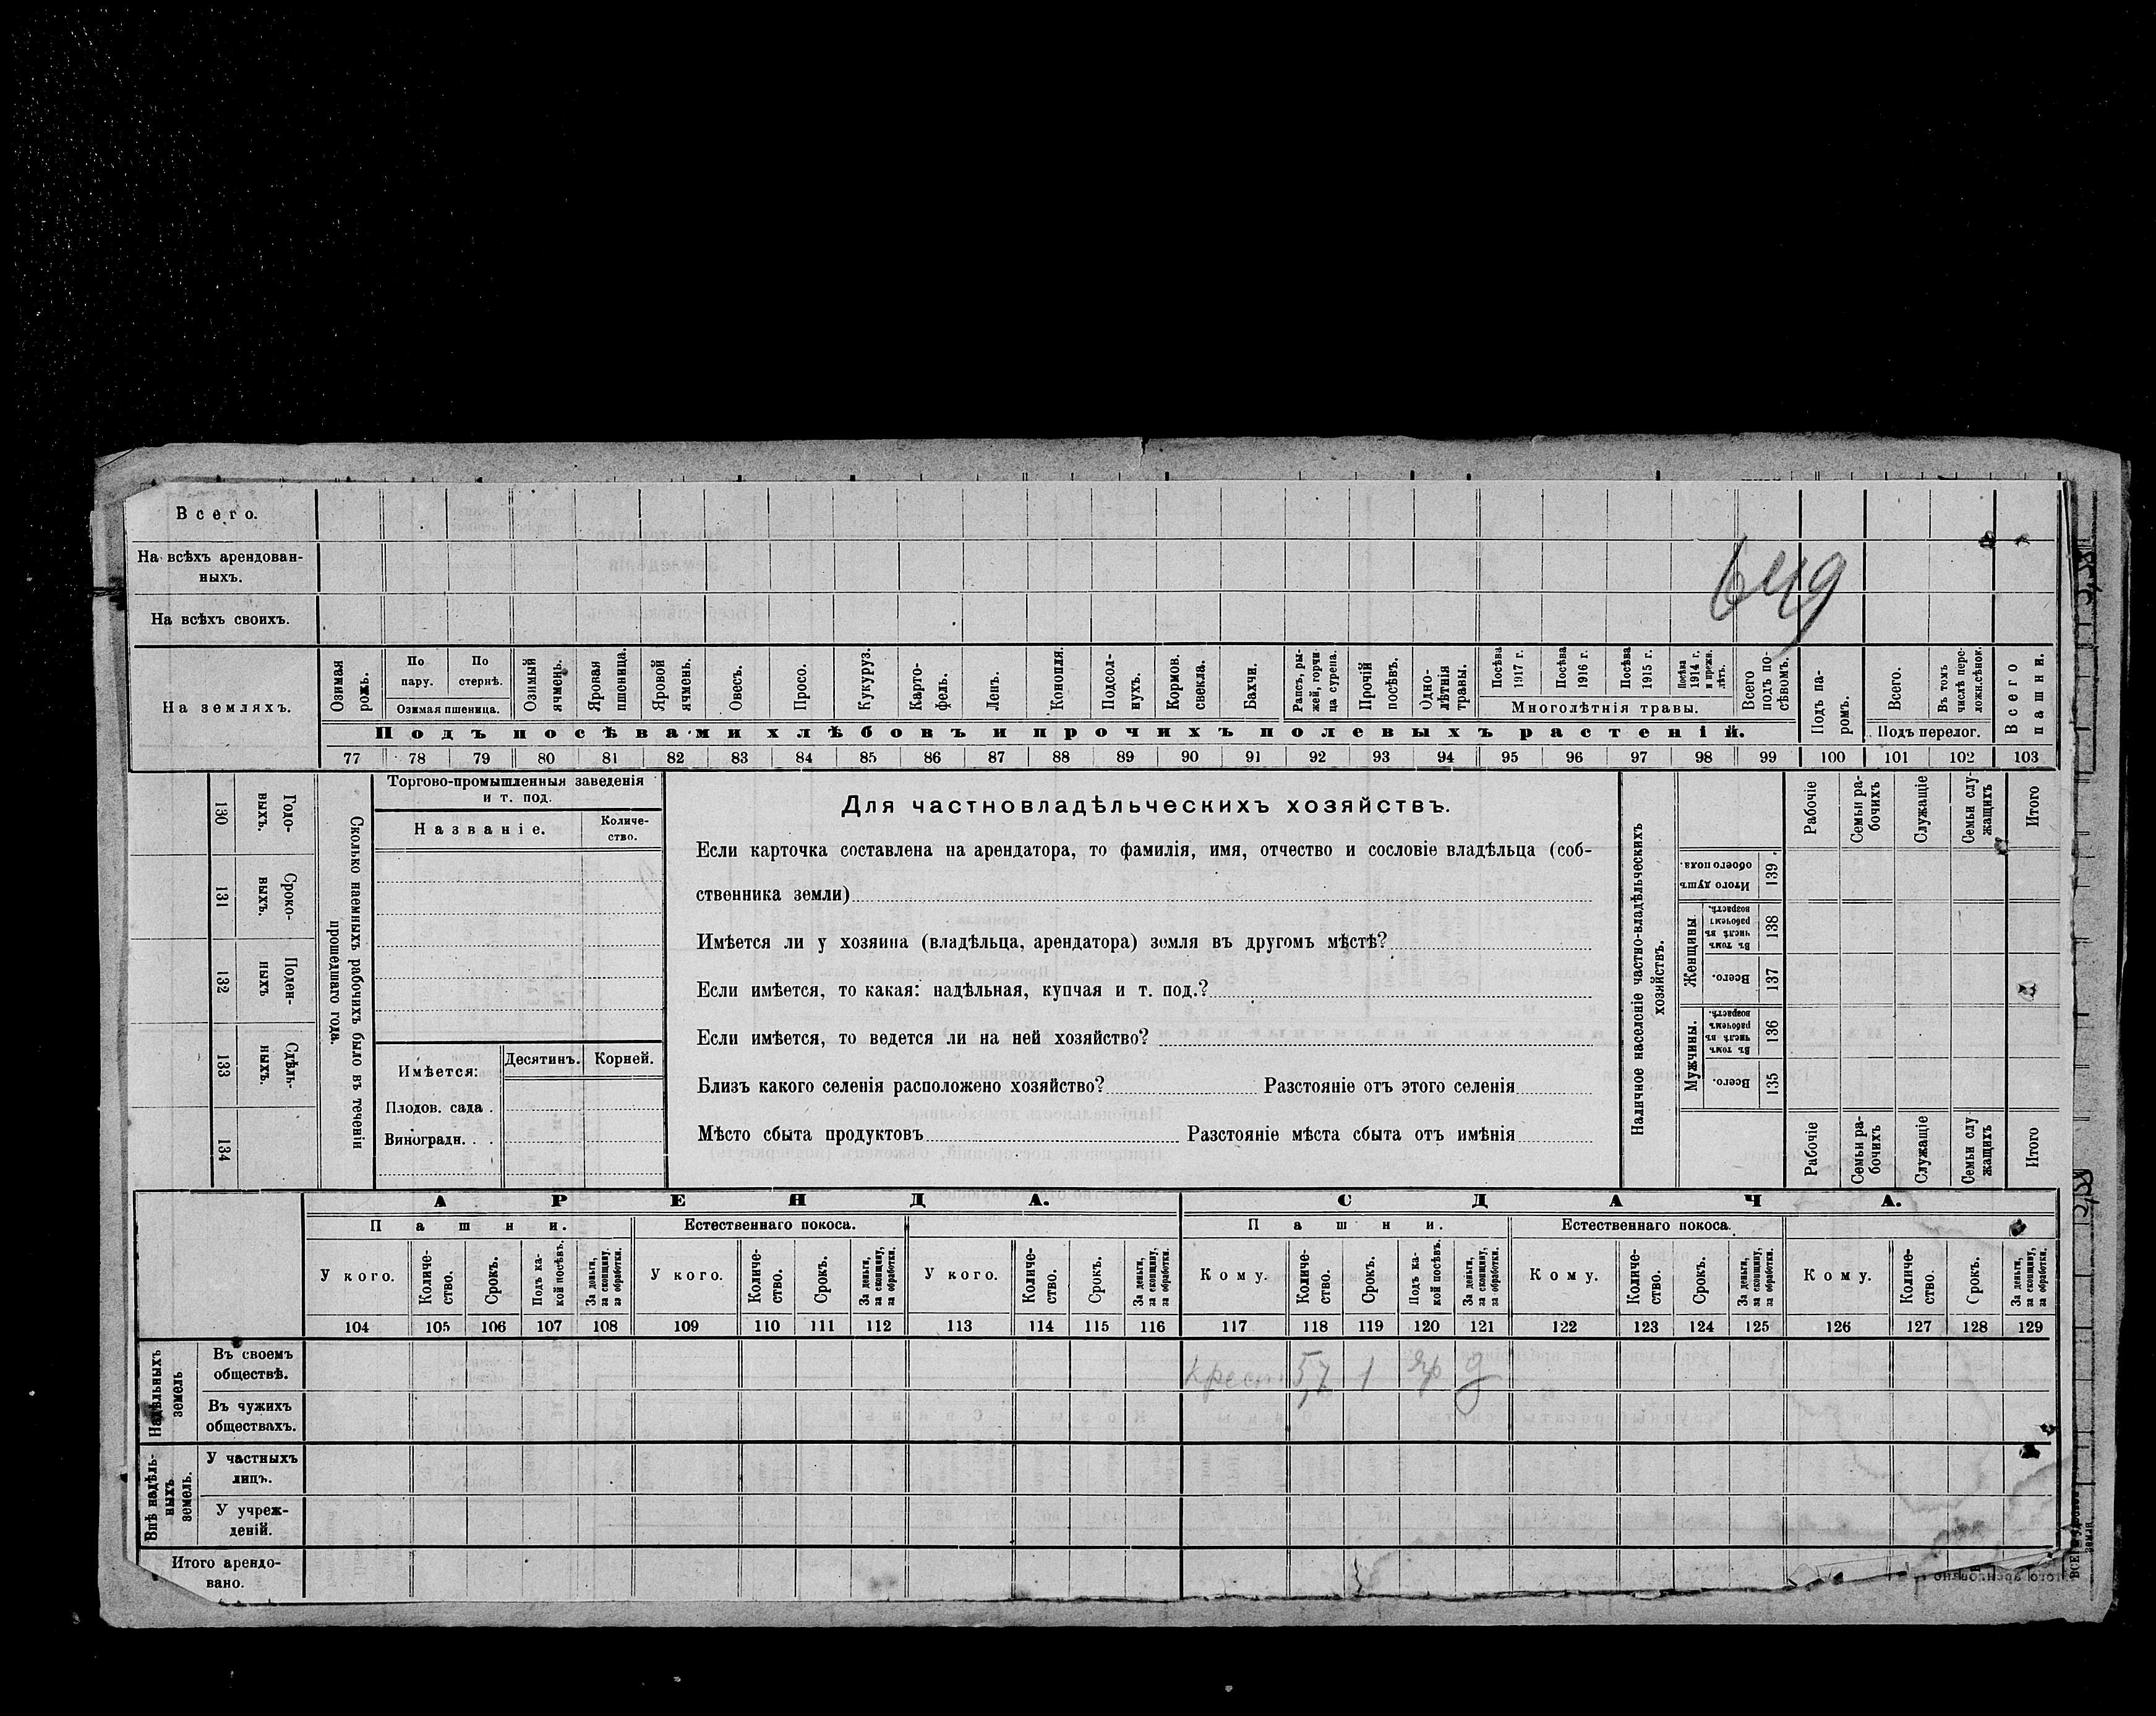 Всего.
На всѣхъ арендован-
ныхъ.
649
На всѣхъ своихъ.
На земляхъ.
Озимая рожь.
По пару.
По стернѣ.
Озимая пшеница.
Озимый ячмень.
Яровая пшеница.
Яровой ячмень.
Овесъ.
Просо.
Кукуруз.
Карто-
фель.
Ленъ.
Конопля.
Подсол-
нухъ.
Кормов. свекла.
Бахчи.
Рапсъ, ры-
жей, горчи-
ца сурепа.
Прочій посѣвъ.
Одно-
лѣтнія травы.
Посѣва 1917 г.
Посѣва 1916 г.
Посѣва 1915 г.
Посѣва 1914 г. и прежн. лѣтъ.
Многолѣтнія травы.
Всего подъ по-
сѣвомъ.
Подъ па-
ромъ.
Всего.
Въ томъ числѣ пере-
ложн. сѣнок.
Подъ перелог.
Всего пашни.
Подъ посѣвами хлѣбовъ и прочихъ полевыхъ растеній.
77 78 79 80 81 82 83 84 85 86 87 88 89 90 91 92 93 94 95 96 97 98 99 100 101 102 103
130
Годо-
выхъ.
131
Сроко-
выхъ.
132
Поден-
ныхъ
133
Сдѣль-
ныхъ.
134
Сколько наемныхъ рабочихъ было въ теченіи
прошедшаго года.
Торгово-промышленныя заведенія
и т. под.
Названіе.
Количе-
ство.
Имѣется:
Десятинъ.
Корней.
Плодов. сада .
Виноградн. . .
Для частновладѣльческихъ хозяйствъ.
Если карточка составлена на арендатора, то фамилія, имя, отчество и сословіе владѣльца (соб-
ственника земли)
Имѣется ли у хозяина (владѣльца, арендатора) земля въ другомъ мѣстѣ?
Если имѣется, то какая: надѣльная, купчая и т. под.?
Если имѣется, то ведется ли на ней хозяйство?
Близъ какого селенія расположено хозяйство? Разстояніе отъ этого селенія
Мѣсто сбыта продуктовъ Разстояніе мѣста сбыта отъ имѣнія
Наличное населеніе частно-владѣльческихъ
хозяйствъ.
Рабочіе
Семьи ра-
бочихъ
Служащіе
Семьи слу-
жащихъ
Итого
Итого душъ
обоего пола.
139
Женщины.
Въ томъ числѣ въ рабочемъ возрастѣ.
138
Всего.
137
Мужчины.
Въ томъ числѣ въ рабочемъ возрастѣ.
136
Всего.
135
Рабочіе
Семьи ра-
бочихъ
Служащіе
Семьи слу
жащихъ
Итого
АРЕНДА.
СДАЧА.
Пашни.
Естественнаго покоса.
Пашни.
Естественнаго покоса.
У кого.
Количе-
ство.
Срокъ.
Подъ ка-
кой посѣвъ.
За деньги,
за скопщину,
за обработки.
У кого.
Количе-
ство.
Срокъ.
За деньги,
за скопщину,
за обработки.
У кого.
Количе-
ство.
Срокъ.
За деньги,
за скопщину,
за обработки.
Кому.
Количе-
ство.
Срокъ.
Подъ ка-
кой посѣвъ.
За деньги,
за скопщину,
за обработки.
Кому.
Количе-
ство.
Срокъ.
За деньги,
за скопщину,
за обработки.
Кому.
Количе-
ство.
Срокъ.
За деньги,
за скопщину,
за обработки.
104 105 106 107 108 109 110 111 112 113 114 115 116 117 118 119 120 121 122 123 124 125 126 127 128 129
Надѣльныхъ
земель
Въ своемъ
обществѣ.
Крест. 5,7 1 Яр д
Въ чужихъ
обществахъ.
Внѣ надѣль-
ныхъ
земель.
У частныхъ
лицъ.
У учреж-
деній.
Итого арендо-
вано.